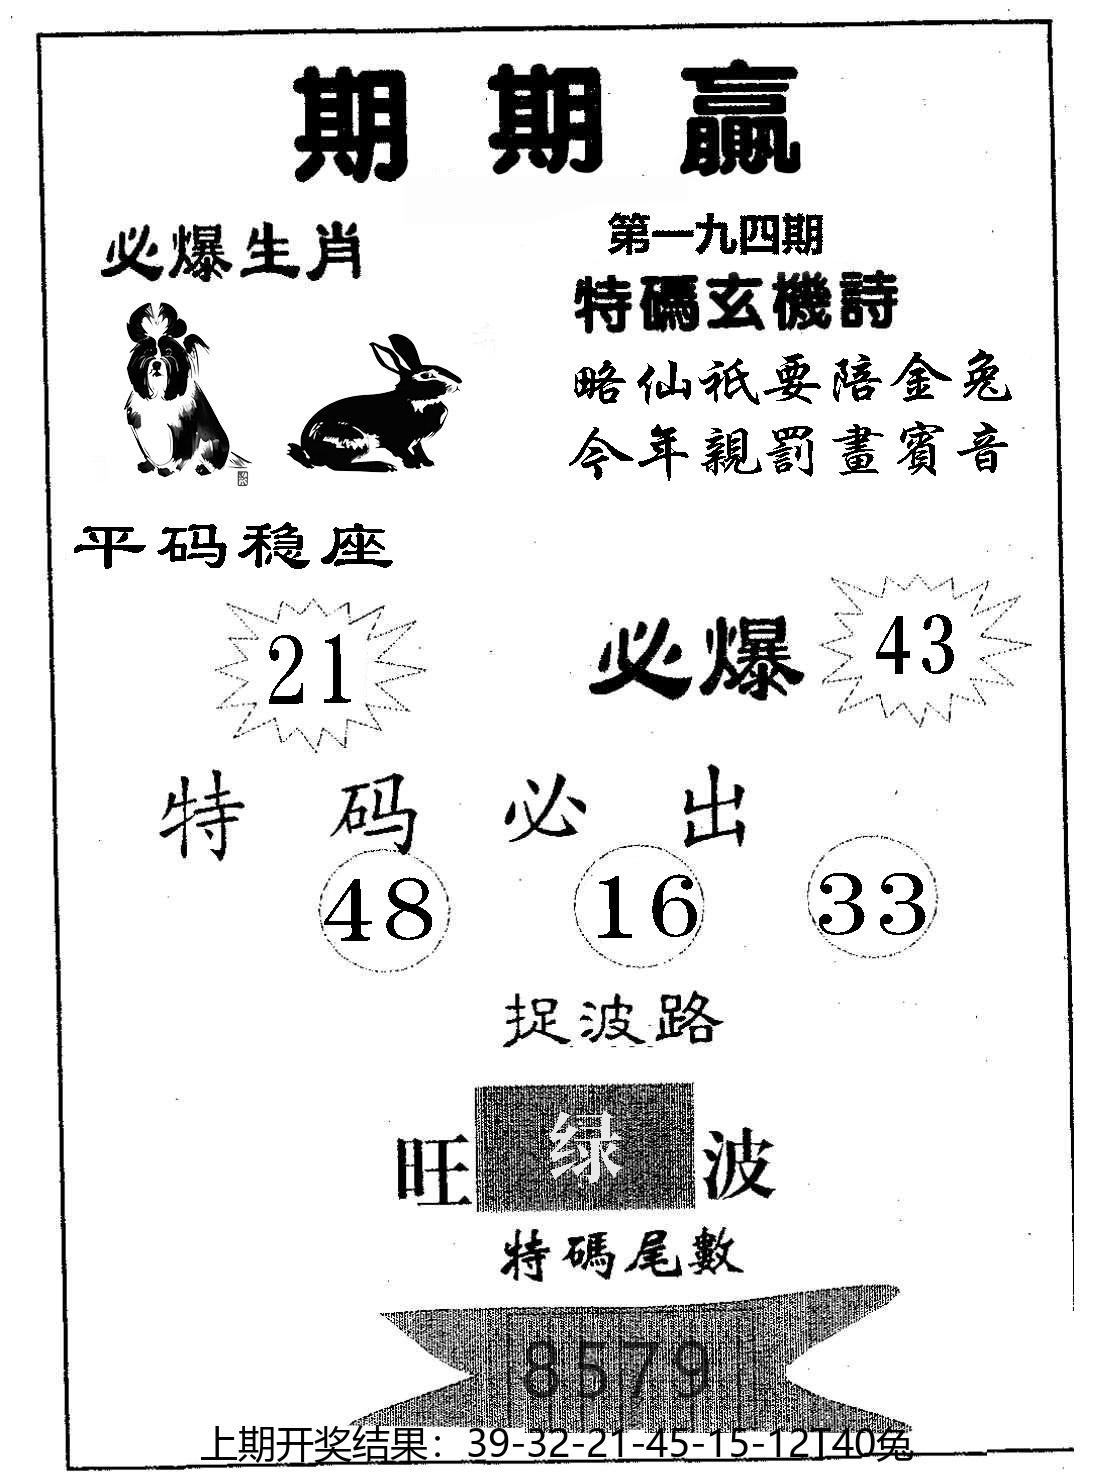 期期贏
必爆生肖
第一九四期
特碼玄機詩
略仙祇要陪金兔
今年親罰畫賓音
平码稳座
21
必爆 43
特码必出
48 16 33
捉波路
旺 绿 波
特碼尾數
8579
上期开奖结果：39-32-21-45-15-12T40兔